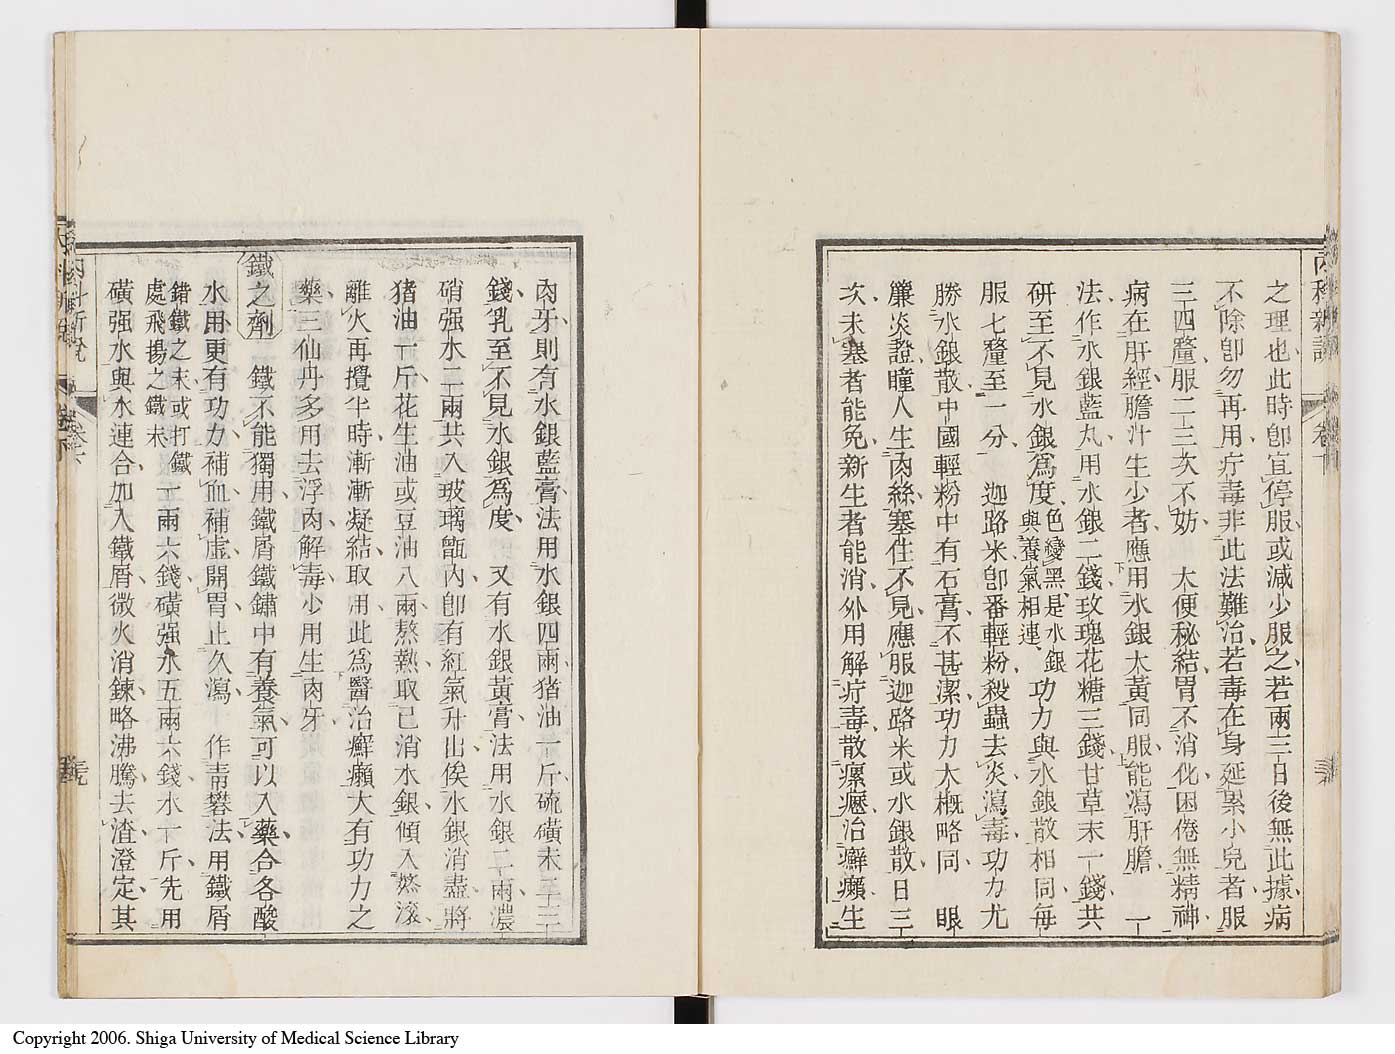 之理也此時卽宜停服或減少服之若兩三日後無此據病
不除卽勿再用疔毒非此法難治若毒在身延累小兒者服
三四釐服二三次不妨　大便秘結胃不消化困倦無精神
病在肝經膽汁生少者應用水銀大黃同服能瀉肝膽　一
法作水銀藍丸用水銀二錢玫瑰花糖三錢甘草末一錢共
研至不見水銀爲度色變黑是水銀與養氣相連功力與水銀散相同每
服七釐至一分　迦路米卽番輕粉殺蟲去炎瀉毒功力尤
勝水銀散中國輕粉中有石膏不甚潔功力大概略同　眼
簾炎證瞳人生肉絲塞住不見應服迦路米或水銀散日三
次未塞者能免新生者能消外用解疔毒散瘰癧治癬癩生
內科新說
卷下
肉牙則有水銀藍膏法用水銀四兩猪油一斤硫磺末
錢乳至不見水銀爲度　又有水銀黃膏法用水銀二兩濃
硝强水二兩共入玻璃甑內卽有紅氣升出俟水銀消盡將
猪油一斤花生油或豆油八兩熬熱取已消水銀傾入燃滾
離火再攪半時漸漸凝結取用此爲醫治癬癩大有功力之
藥三仙丹多用去浮肉解毒少用生肉牙
鐵之劑　鐵不能獨用鐵屑鐵鏽中有養氣可以入藥合各酸
水用更有功力補血補虛開胃止久瀉　作靑礬法用鐵屑
錯鐵之末或打鐵處飛揚之鐵末一兩六錢磺强水五兩六錢水十斤先用
磺强水與水連合加入鐵屑微火消鍊略沸騰去渣澄定其
Copyright 2006. Shiga University of Medical Science Library